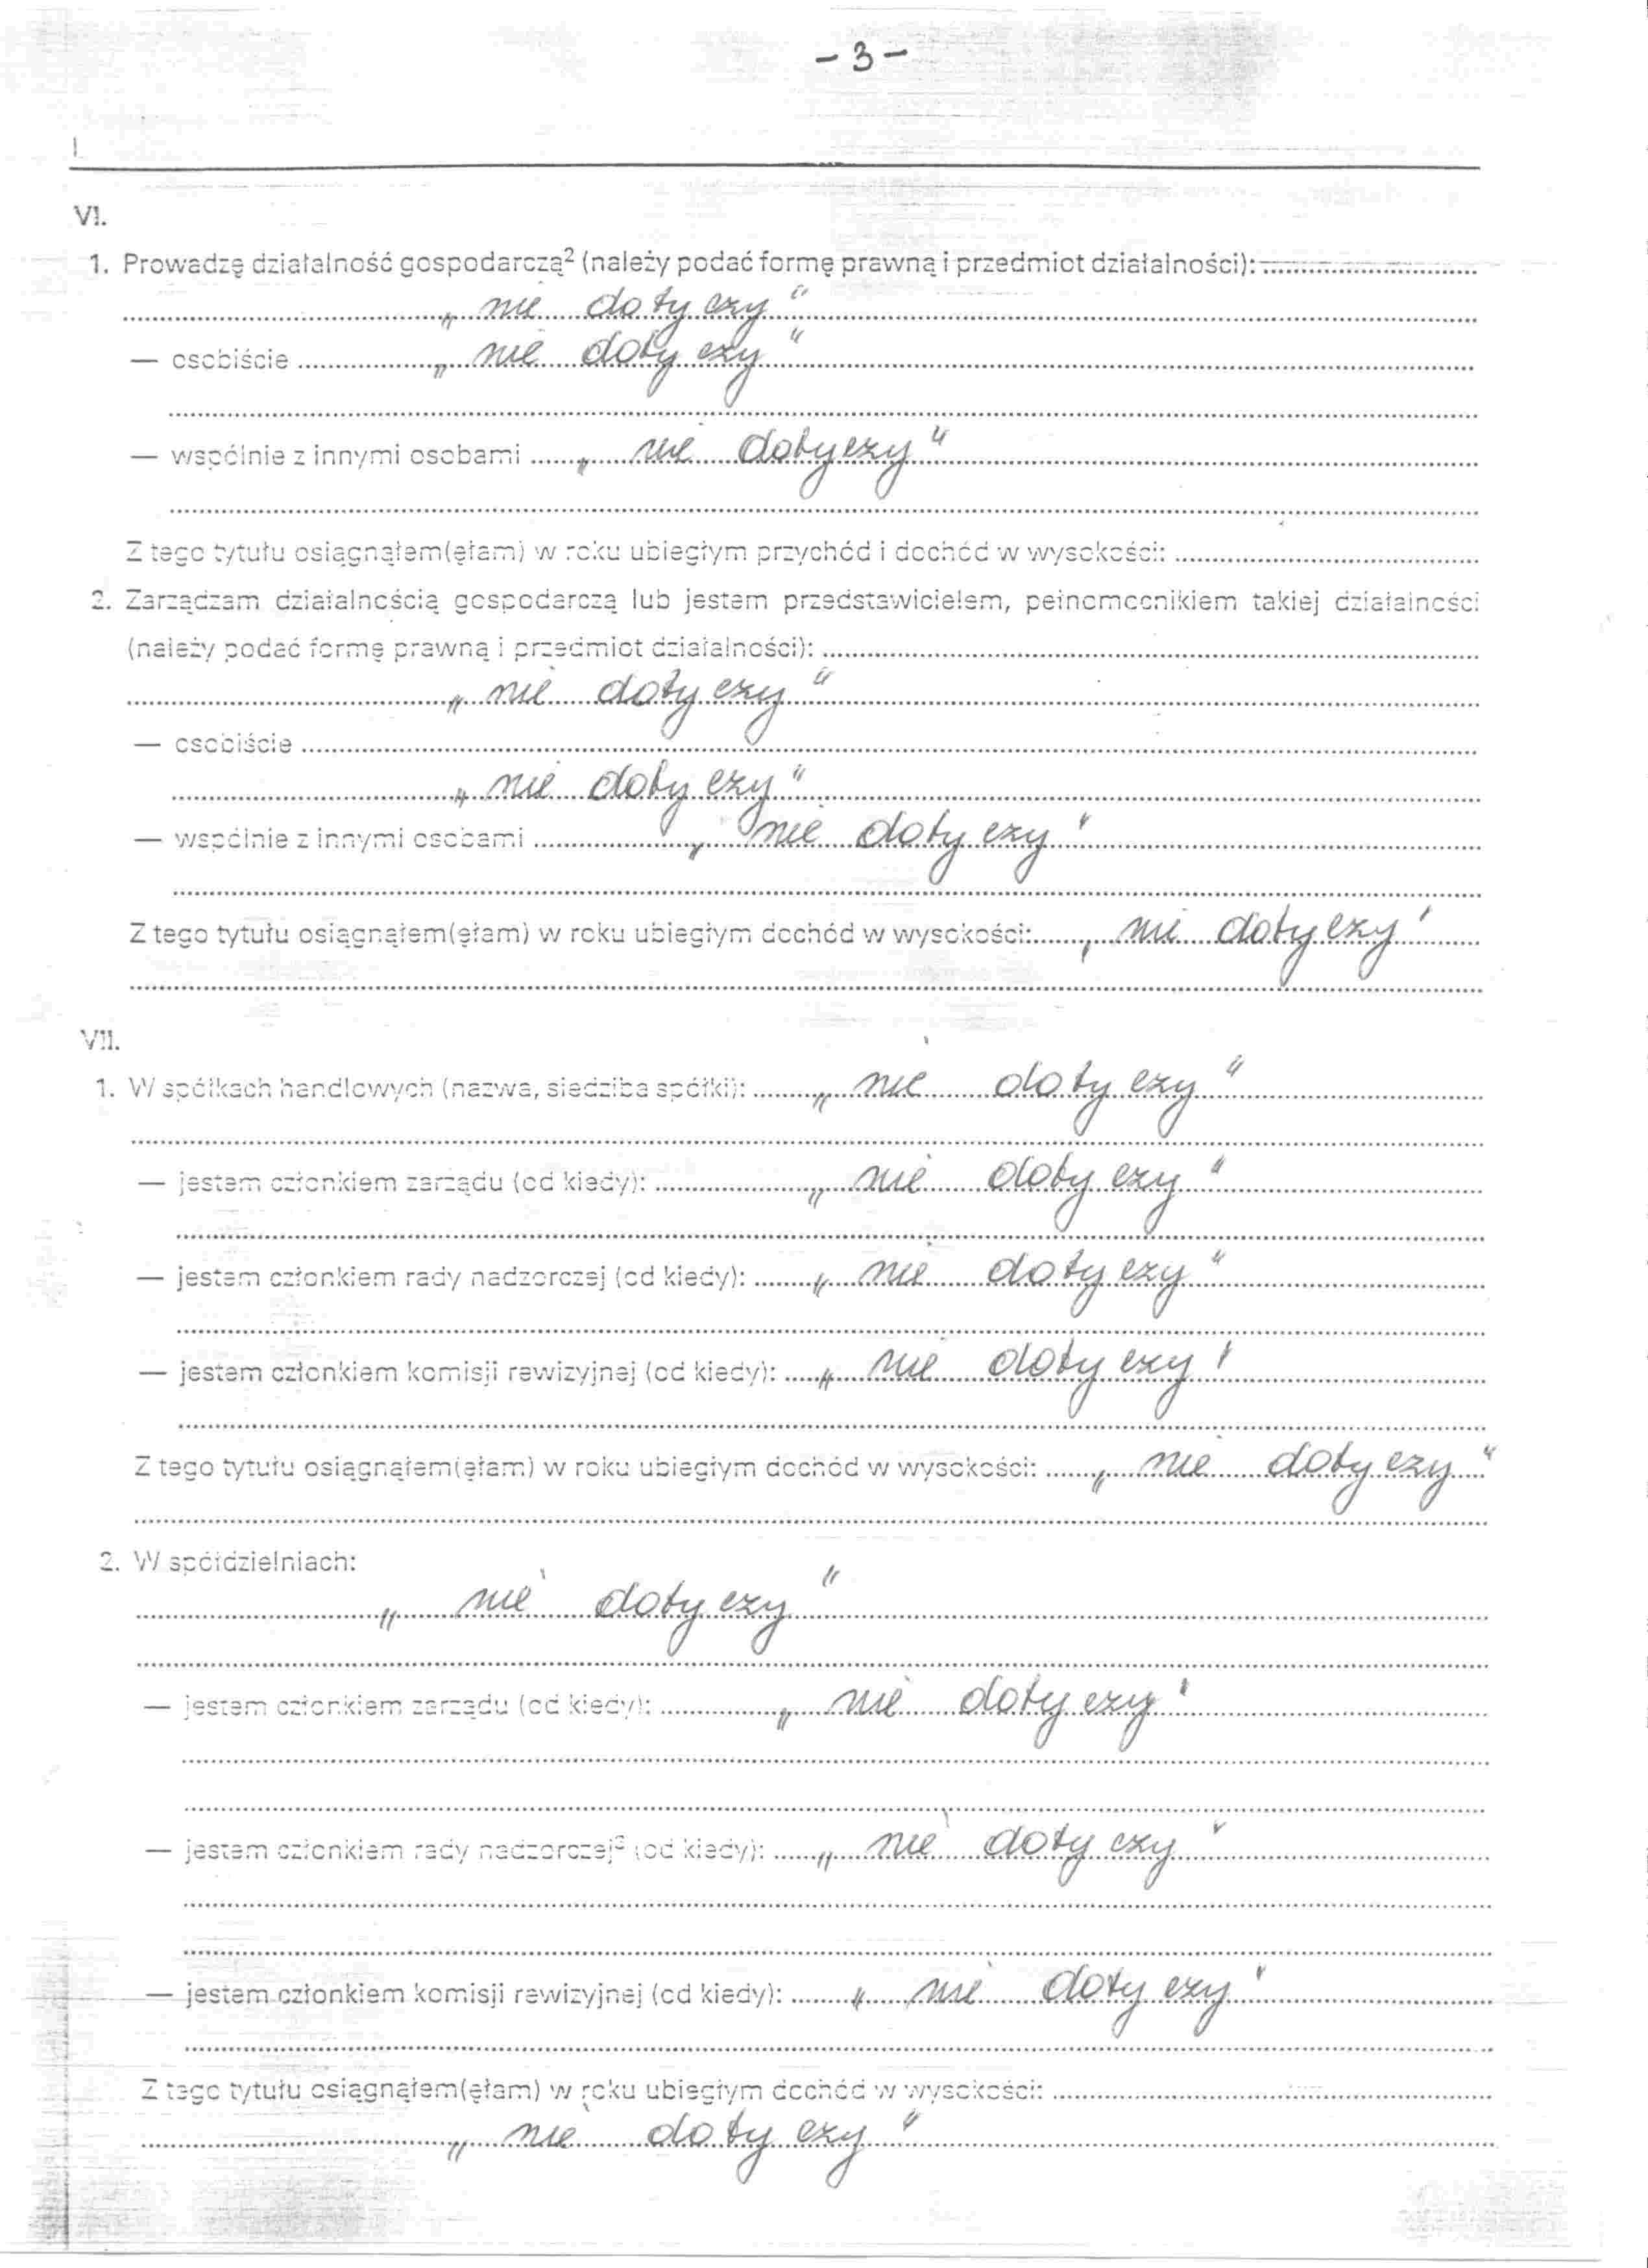 - 3 -
VI.
1. Prowadzę działalność gospodarczą² (należy podać formę prawną i przedmiot działalności):
„nie dotyczy"
— osobiście „nie dotyczy"
— wspólnie z innymi osobami „nie dotyczy"
Z tego tytułu osiągnąłem(ęłam) w roku ubiegłym przychód i dochód w wysokości:
2. Zarządzam działalnością gospodarczą lub jestem przedstawicielem, pełnomocnikiem takiej działalności
(należy podać formę prawną i przedmiot działalności):
„nie dotyczy"
— osobiście
„nie dotyczy"
— wspólnie z innymi osobami „nie dotyczy"
Z tego tytułu osiągnąłem(ęłam) w roku ubiegłym dochód w wysokości: „nie dotyczy"
VII.
1. W spółkach handlowych (nazwa, siedziba spółki): „nie dotyczy"
— jestem członkiem zarządu (od kiedy): „nie dotyczy"
— jestem członkiem rady nadzorczej (od kiedy): „nie dotyczy"
— jestem członkiem komisji rewizyjnej (od kiedy): „nie dotyczy"
Z tego tytułu osiągnąłem(ęłam) w roku ubiegłym dochód w wysokości: „nie dotyczy"
2. W spółdzielniach:
„nie dotyczy"
— jestem członkiem zarządu (od kiedy): „nie dotyczy"
— jestem członkiem rady nadzorczej³ (od kiedy): „nie dotyczy"
— jestem członkiem komisji rewizyjnej (od kiedy): „nie dotyczy"
Z tego tytułu osiągnąłem(ęłam) w roku ubiegłym dochód w wysokości:
„nie dotyczy"